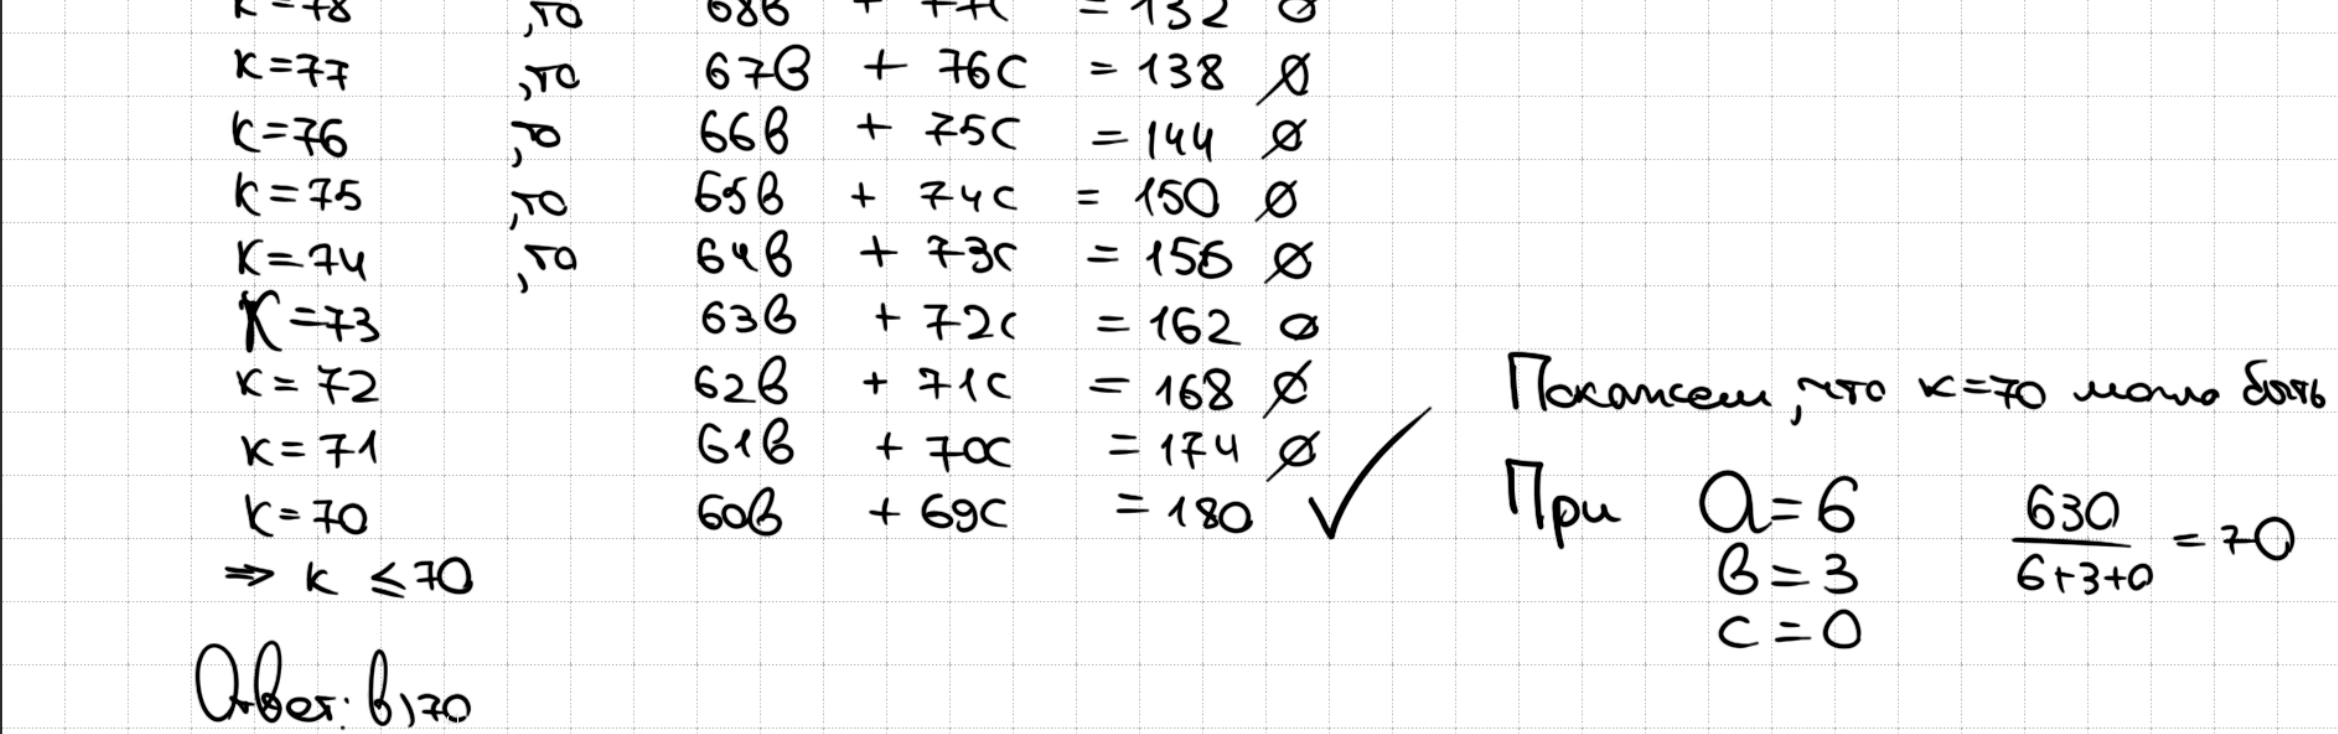 к=78 ,то 68в + 77с = 132 ∅
к=77 ,то 67в + 76с = 138 ∅
к=76 ,то 66в + 75с = 144 ∅
к=75 ,то 65в + 74с = 150 ∅
к=74 ,то 64в + 73с = 156 ∅
к=73 63в + 72с = 162 ∅
к=72 62в + 71с = 168 ∅
к=71 61в + 70с = 174 ∅
к=70 60в + 69с = 180 ✓
⇒ к ≤ 70
Ответ: в) 70
Покажем, что к=70 могло быть
При a=6
в=3
c=0
630
6+3+0
= 70